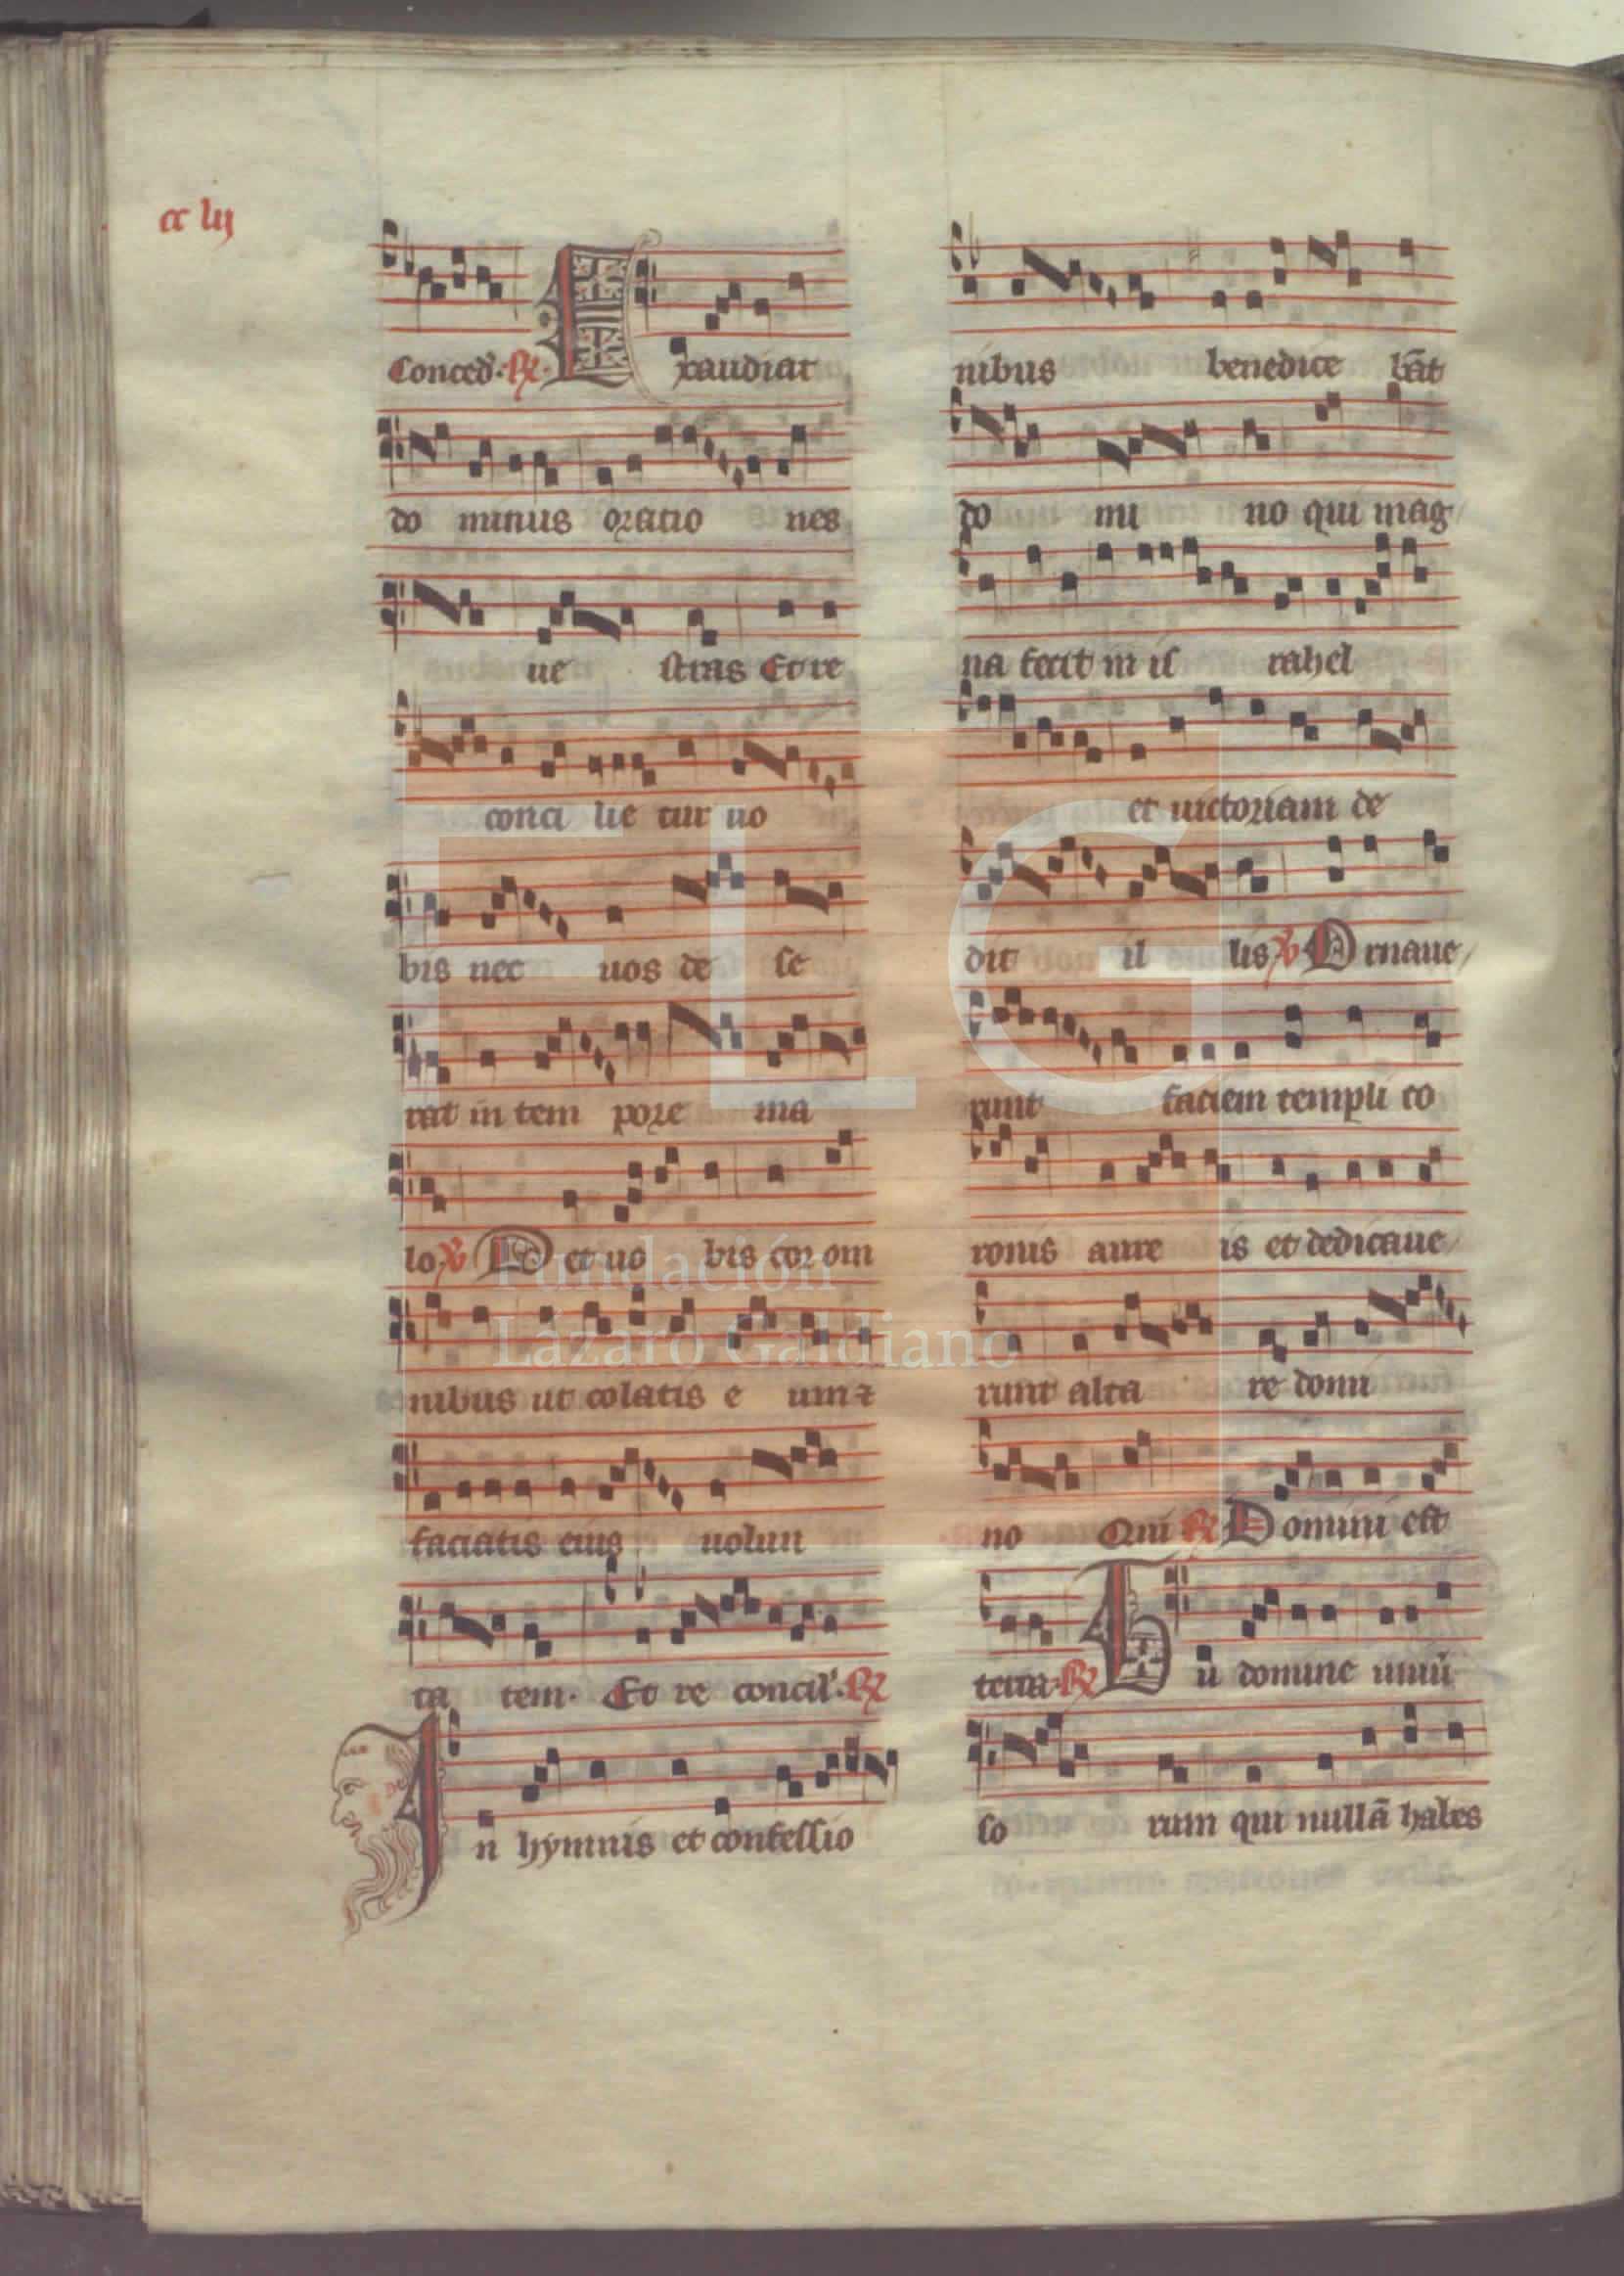 cc lij
Conced̾. ℟. Exaudiat
do minus oratio nes
ue stras Et re
conci lie tur uo
bis nec uos de se
rat in tem pore ma
lo. ℣ Det uo bis cor om
nibus ut colatis e um ⁊
faciatis eius uolun
ta tem. Et re concil'. ℟
In hymnis et confessio
nibus benedice bāt
do mi no qui mag
na fecit in is rahel
et uictoriam de
dit il lis ℣ Ornaue
runt faciem templi co
ronis aure is et dedicaue
runt alta re domi
no Qui ℟ Domini est
terra. ℟ Tu domine uniū
so rum qui nullā habes
FLG
Fundación
Lázaro Galdiano